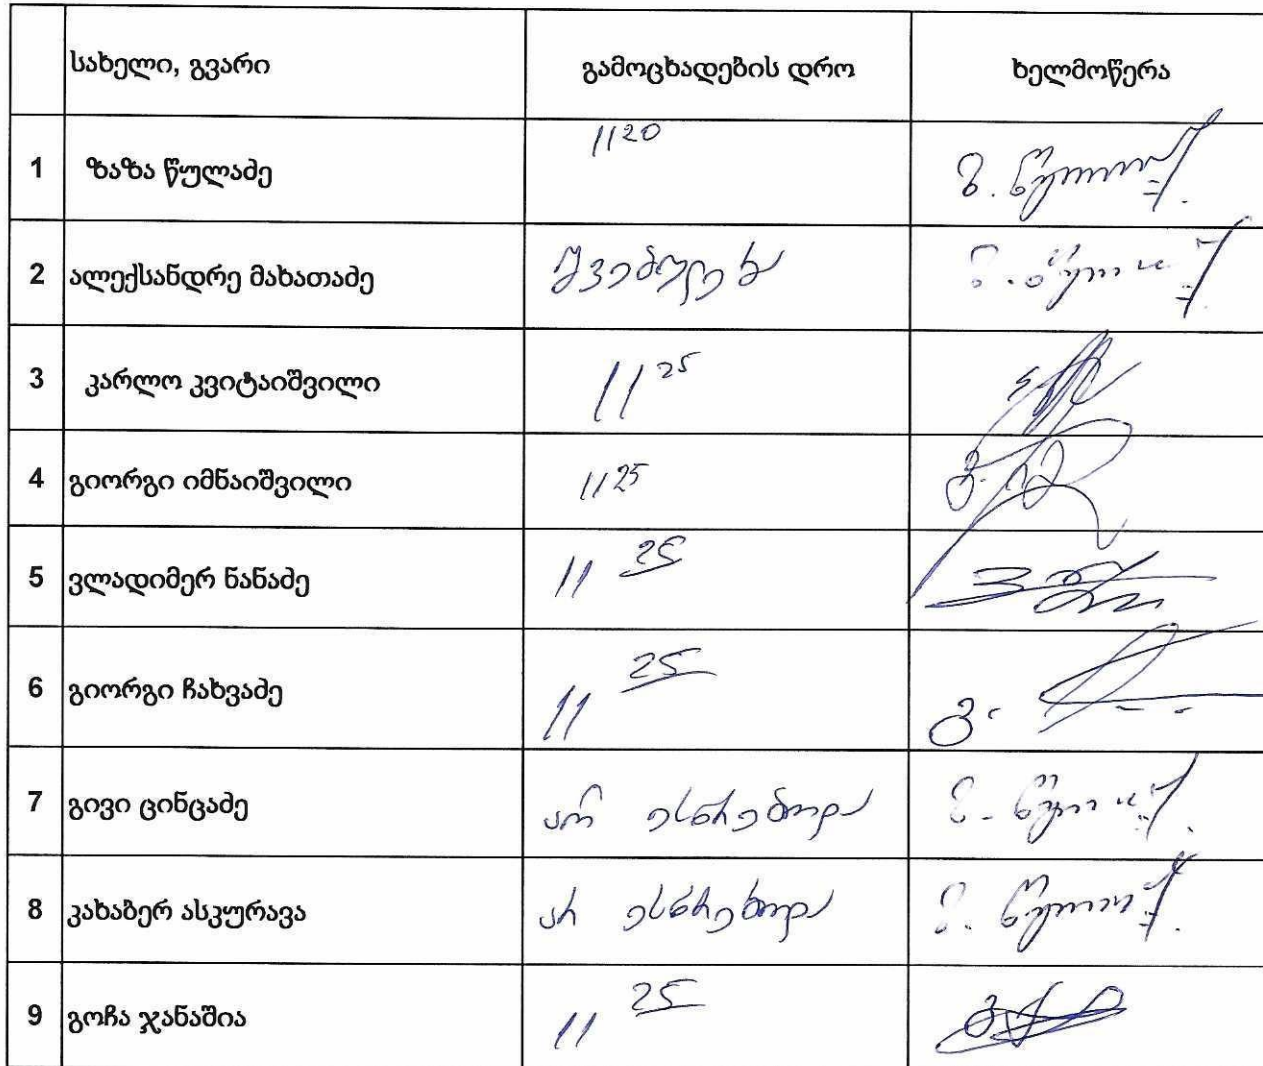 სახელი, გვარი გამოცხადების დრო ხელმოწერა
1 ზაზა წულაძე 11 20 ზ. წულაძე
2 ალექსანდრე მახათაძე შვებულება
3 კარლო კვიტაიშვილი 11 25
4 გიორგი იმნაიშვილი 11 25
5 ვლადიმერ ნანაძე 11 25
6 გიორგი ჩახვაძე 11 25
7 გივი ცინცაძე არ ესწრებოდა
8 კახაბერ ასკურავა არ ესწრებოდა
9 გოჩა ჯანაშია 11 25